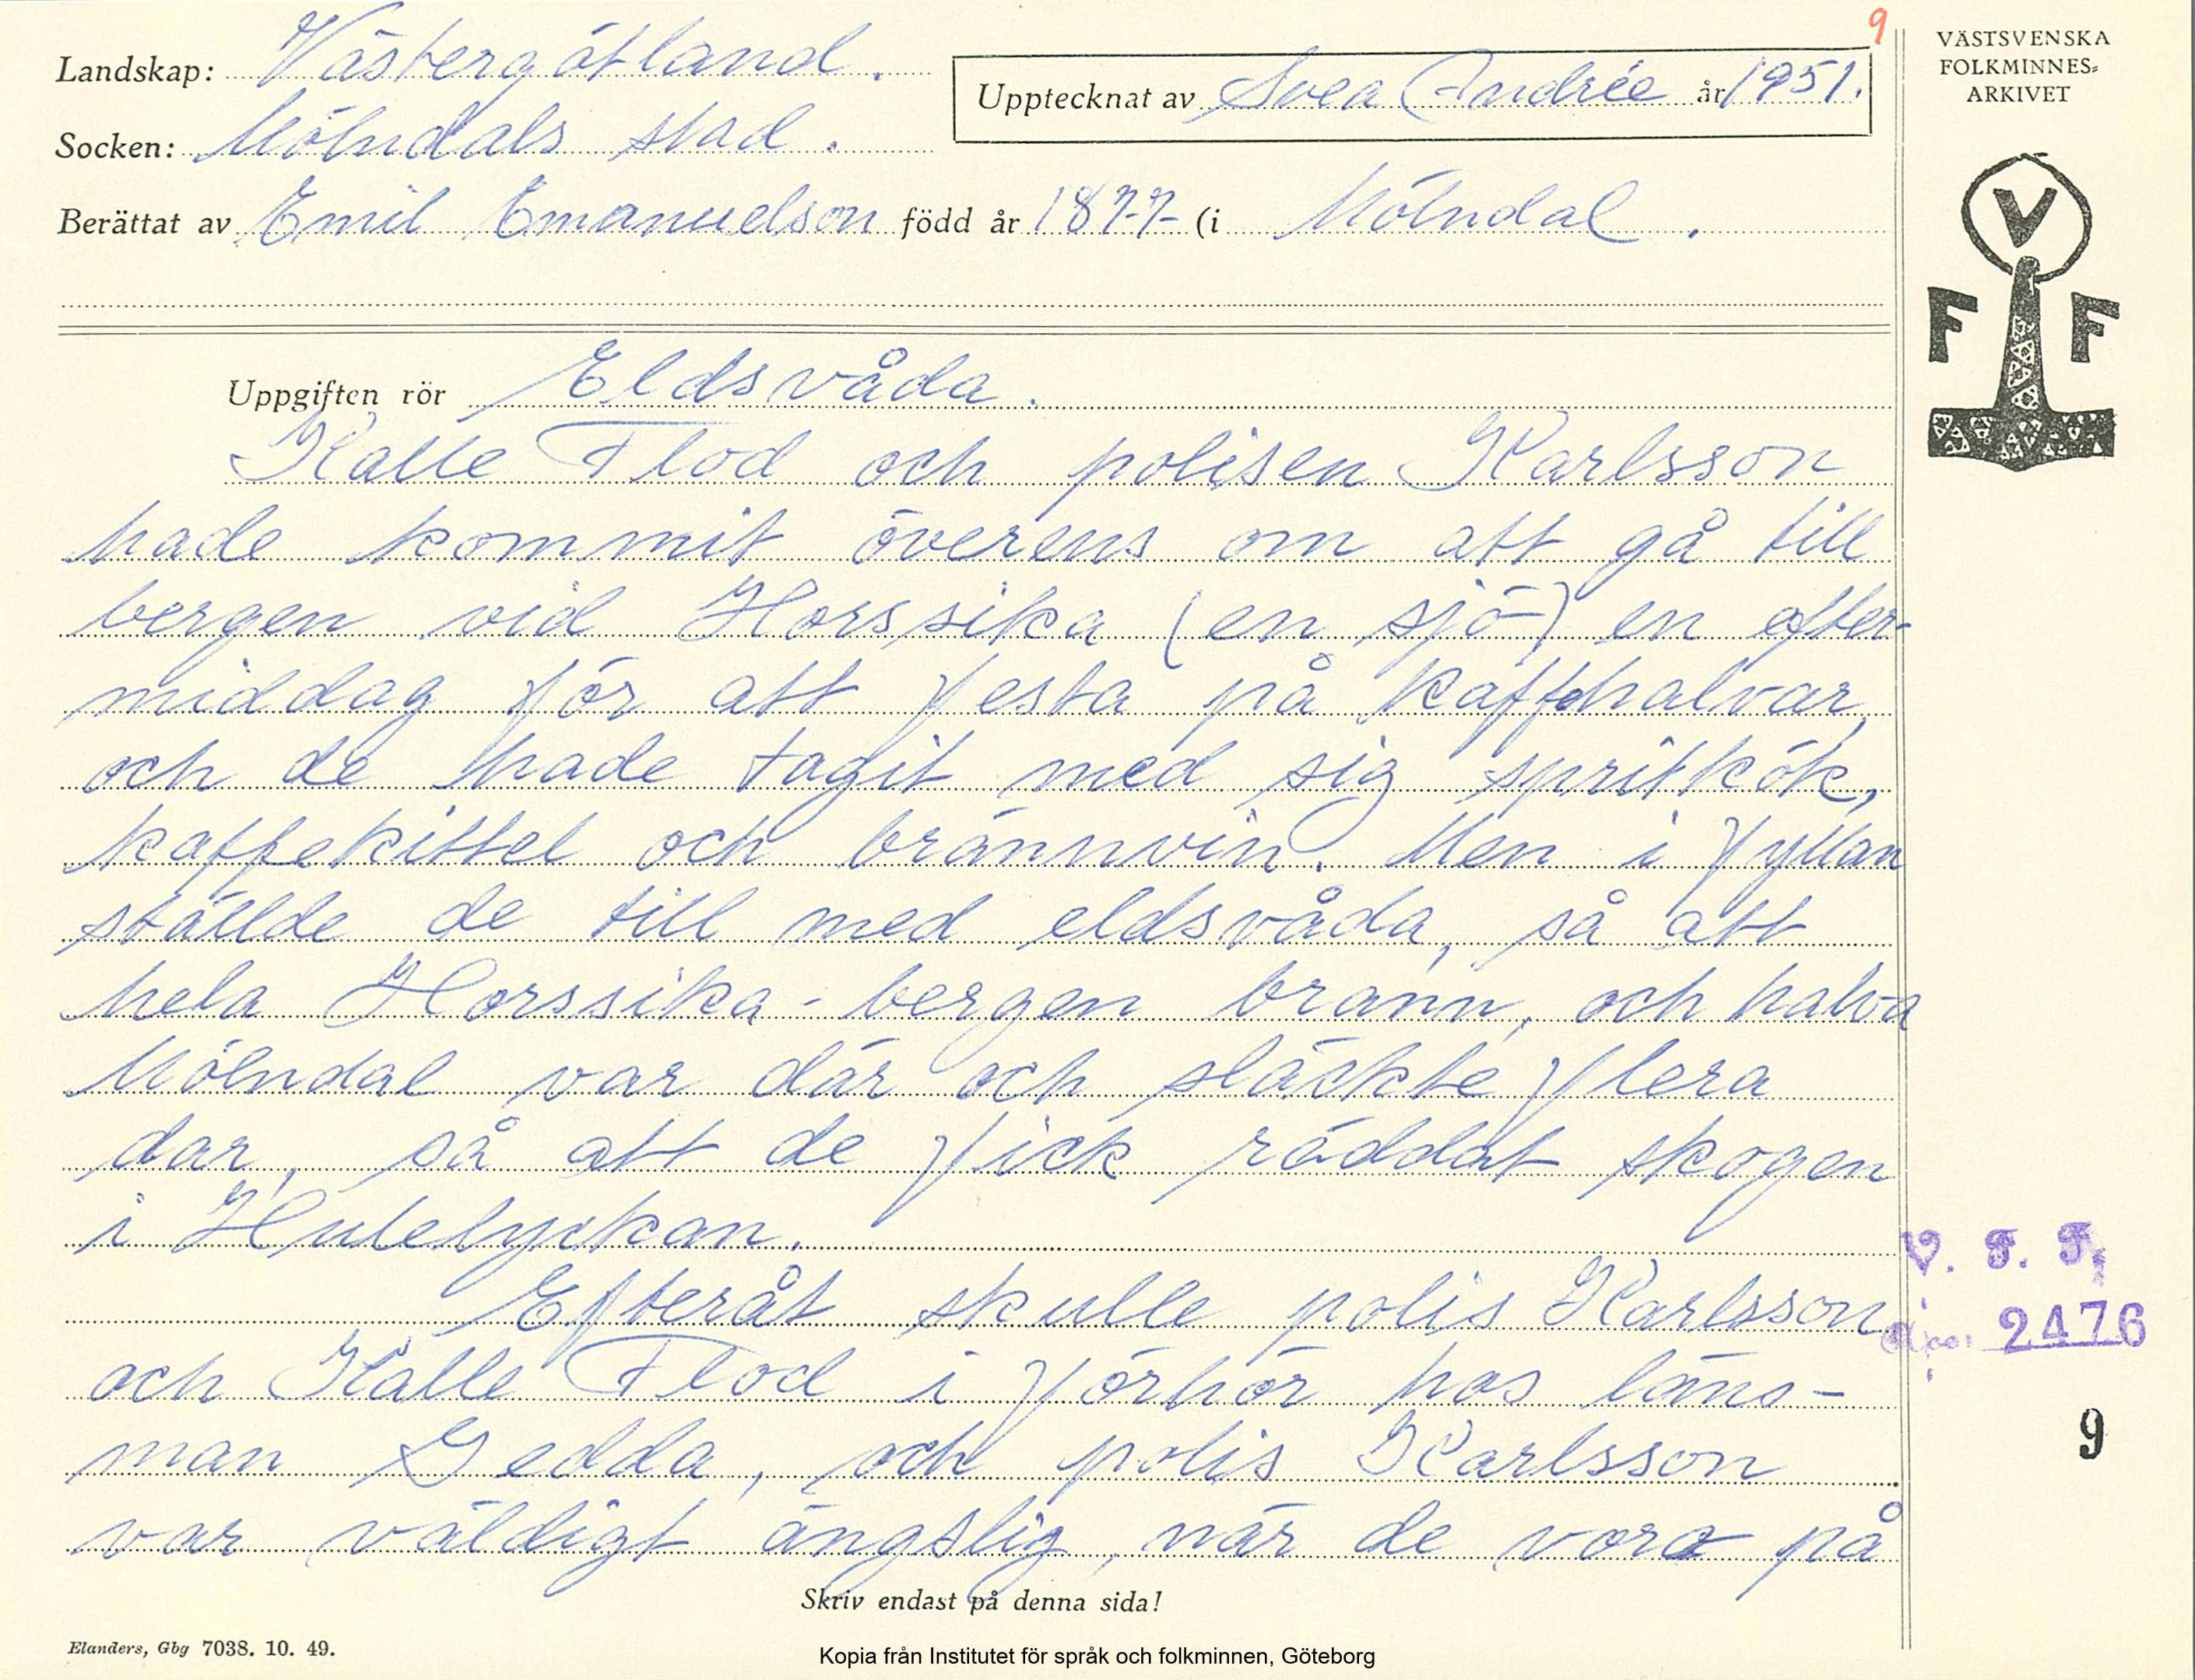 9
Landskap: Västergötland.
Upptecknat av Svea Andrée år 1951.
Socken: Mölndals stad.
Berättat av Emil Emanuelson född år 1877 (i Mölndal.
VÄSTSVENSKA
FOLKMINNES=
ARKIVET
V
F F
Uppgiften rör Eldsvåda.
Kalle Flod och polisen Karlsson
hade kommit överens om att gå till
bergen vid Horssika (en sjö) en efter-
middag för att festa på kaffehalvar,
och de hade tagit med sig spritkök,
kaffekittel och brännvin. Men i fyllan
ställde de till med eldsvåda, så att
hela Horssika-bergen brann, och halva
Mölndal var där och släckte flera
dar, så att de fick räddat skogen
i Hulelyckan.
Efteråt skulle polis Karlsson
och Kalle Flod i förhör hos läns-
man Gedda, och polis Karlsson
var väldigt ängslig, när de voro på
V. F. F.
2476
9
Skriv endast på denna sida!
Elanders, Gbg 7038. 10. 49.
Kopia från Institutet för språk och folkminnen, Göteborg